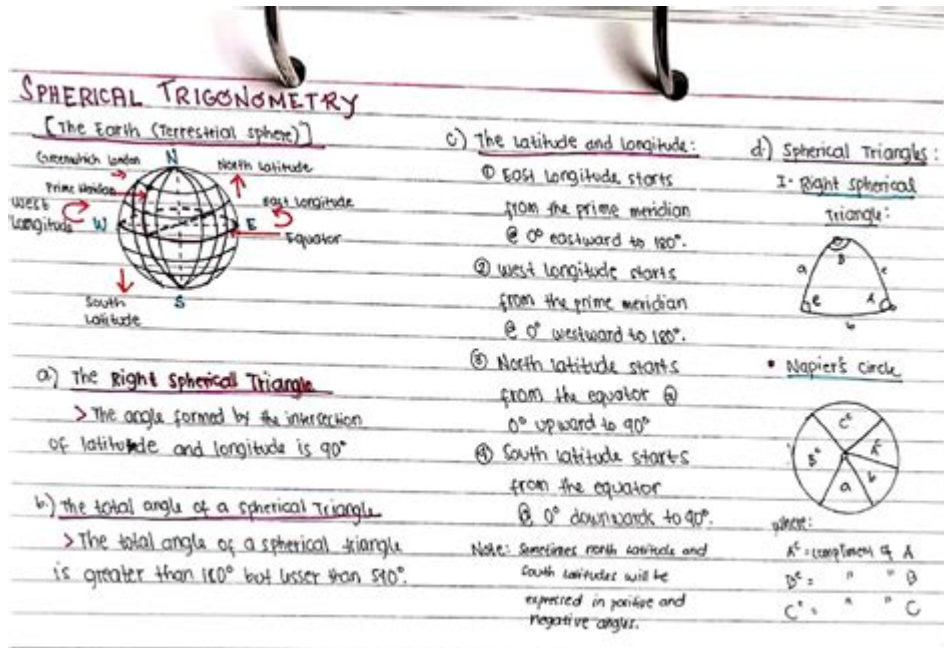 SPHERICAL TRIGONOMETRY
[The Earth (Terrestrial sphere)]
Greenwhich London
N
North Latitude
Prime
West
Longitude
W
E
East Longitude
Equator
South
Latitude
S
a) The Right Spherical Triangle
> The angle formed by the intersection
of latitude and longitude is 90°
b.) The total angle of a spherical Triangle
> The total angle of a spherical triangle
is greater than 180° but lesser than 540°.
c) The Latitude and Longitude:
① East Longitude starts
from the prime meridian
@ 0° eastward to 180°.
② West Longitude starts
from the prime meridian
@ 0° westward to 180°.
③ North latitude starts
from the equator @
0° upward to 90°
④ South latitude starts
from the equator
@ 0° downwards to 90°.
Note: Sometimes north latitude and
south latitudes will be
expressed in positive and
negative angles.
d) Spherical Triangles:
I- Right spherical
Triangle:
B
a
c
A
b
• Napier's circle
Cᶜ
Bᶜ
Aᶜ
a
b
where:
Aᶜ = compliment of A
" " B
Cᶜ = " " C